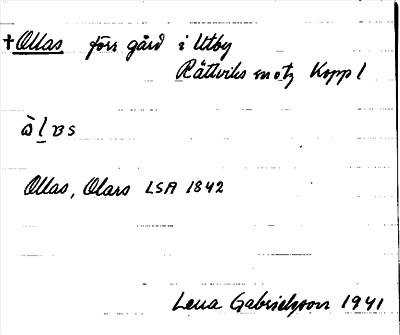 †Ollas förr gård i Utby
Rättviks sn o tg Kopp l
ò l̲ ɒs
Ollas, Olars LSA 1842
Lena Gabrielsson 1941